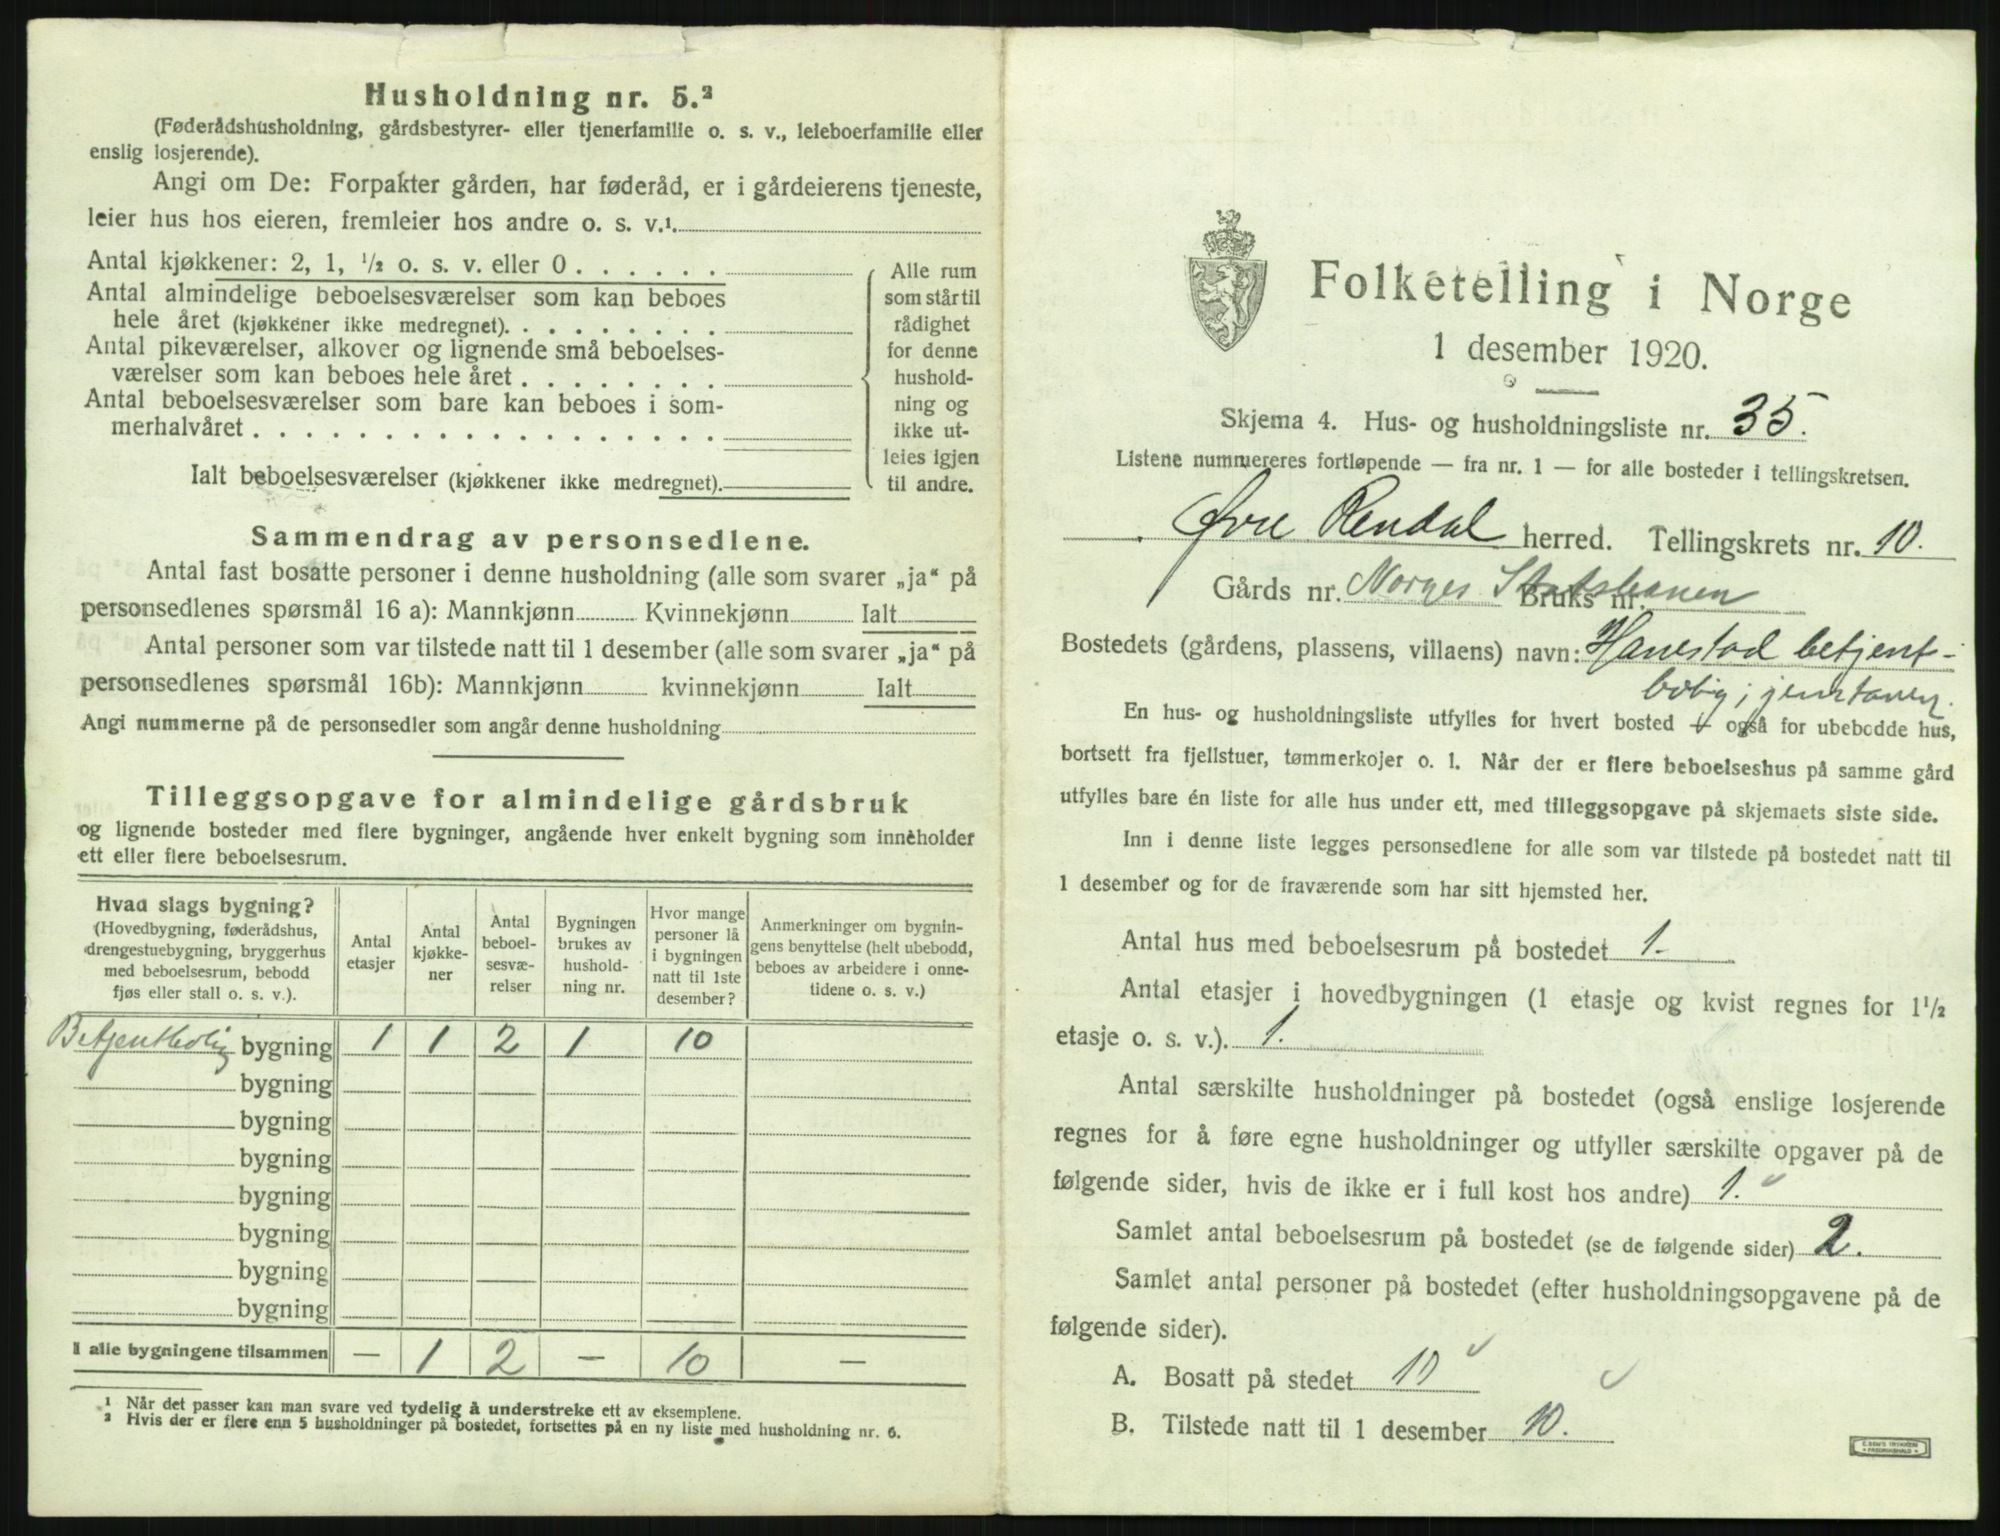 Husholdning nr. 5.²
(Føderådshusholdning, gårdsbestyrer- eller tjenerfamilie o. s. v., leieboerfamilie eller
enslig losjerende).
Angi om De: Forpakter gården, har føderåd, er i gårdeierens tjeneste,
leier hus hos eieren, fremleier hos andre o. s. v.¹
Antal kjøkkener: 2, 1, ½ o. s. v. eller 0
Antal almindelige beboelsesværelser som kan beboes
hele året (kjøkkener ikke medregnet)
Antal pikeværelser, alkover og lignende små beboelses-
værelser som kan beboes hele året
Antal beboelsesværelser som bare kan beboes i som-
merhalvåret
Alle rum
som står til
rådighet
for denne
hushold-
ning og
ikke ut-
leies igjen
til andre.
Ialt beboelsesværelser (kjøkkener ikke medregnet)
Sammendrag av personsedlene.
Antal fast bosatte personer i denne husholdning (alle som svarer „ja“ på
personsedlenes spørsmål 16 a): Mannkjønn Kvinnekjønn Ialt
Antal personer som var tilstede natt til 1 desember (alle som svarer „ja“ på
personsedlenes spørsmål 16b): Mannkjønn kvinnekjønn Ialt
Angi nummerne på de personsedler som angår denne husholdning
Tilleggsopgave for almindelige gårdsbruk
og lignende bosteder med flere bygninger, angående hver enkelt bygning som inneholder
ett eller flere beboelsesrum.
Hvad slags bygning?
(Hovedbygning, føderådshus,
drengestuebygning, bryggerhus
med beboelsesrum, bebodd
fjøs eller stall o. s. v.).
Antal
etasjer
Antal
kjøkke-
ner
Antal
beboel-
sesvæ-
relser
Bygningen
brukes av
hushold-
ning nr.
Hvor mange
personer lå
i bygningen
natt til 1ste
desember?
Anmerkninger om bygnin-
gens benyttelse (helt ubebodd,
beboes av arbeidere i onne-
tidene o. s. v.)
Betjentbolig bygning 1 1 2 1 10
bygning
bygning
bygning
bygning
bygning
bygning
bygning
I alle bygningene tilsammen — 1 2 — 10 —
¹ Når det passer kan man svare ved tydelig å understreke ett av eksemplene.
² Hvis der er flere enn 5 husholdninger på bostedet, fortsettes på en ny liste med husholdning nr. 6.
Folketelling i Norge
1 desember 1920.
Skjema 4. Hus- og husholdningsliste nr. 35.
Listene nummereres fortløpende — fra nr. 1 — for alle bosteder i tellingskretsen.
Øvre Rendal herred. Tellingskrets nr. 10.
Gårds nr. Norges Statsbaner Bruks nr.
Bostedets (gårdens, plassens, villaens) navn: Hanestad betjent-
bolig
En hus- og husholdningsliste utfylles for hvert bosted — også for ubebodde hus,
bortsett fra fjellstuer, tømmerkojer o. l. Når der er flere beboelseshus på samme gård
utfylles bare én liste for alle hus under ett, med tilleggsopgave på skjemaets siste side.
Inn i denne liste legges personsedlene for alle som var tilstede på bostedet natt til
1 desember og for de fraværende som har sitt hjemsted her.
Antal hus med beboelsesrum på bostedet 1.
Antal etasjer i hovedbygningen (1 etasje og kvist regnes for 1½
etasje o. s. v.). 1.
Antal særskilte husholdninger på bostedet (også enslige losjerende
regnes for å føre egne husholdninger og utfyller særskilte opgaver på de
følgende sider, hvis de ikke er i full kost hos andre) 1.
Samlet antal beboelsesrum på bostedet (se de følgende sider) 2.
Samlet antal personer på bostedet (efter husholdningsopgavene på de
følgende sider).
A. Bosatt på stedet 10
B. Tilstede natt til 1 desember 10.